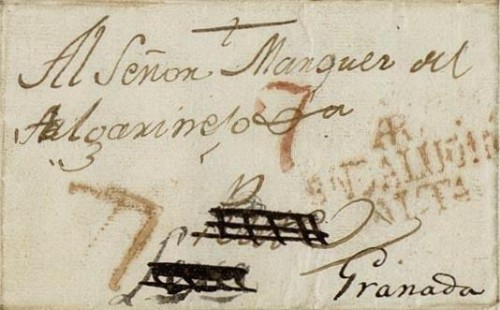 Al Señor Marques del
Algarinejo
7
AR
ANDALUCIA
ALTA
7
Granada